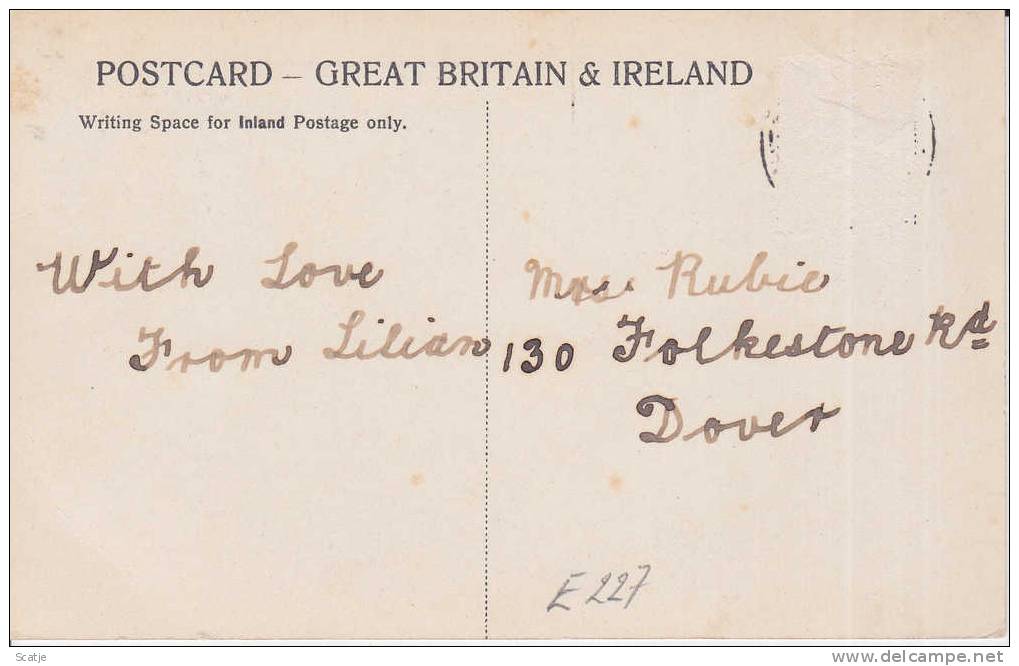 POSTCARD – GREAT BRITAIN & IRELAND
Writing Space for Inland Postage only.
With Love
From Lilian
Mrs. Rubie
130 Folkestone Rd
Dover
E 227
Scatje
www.delcampe.net